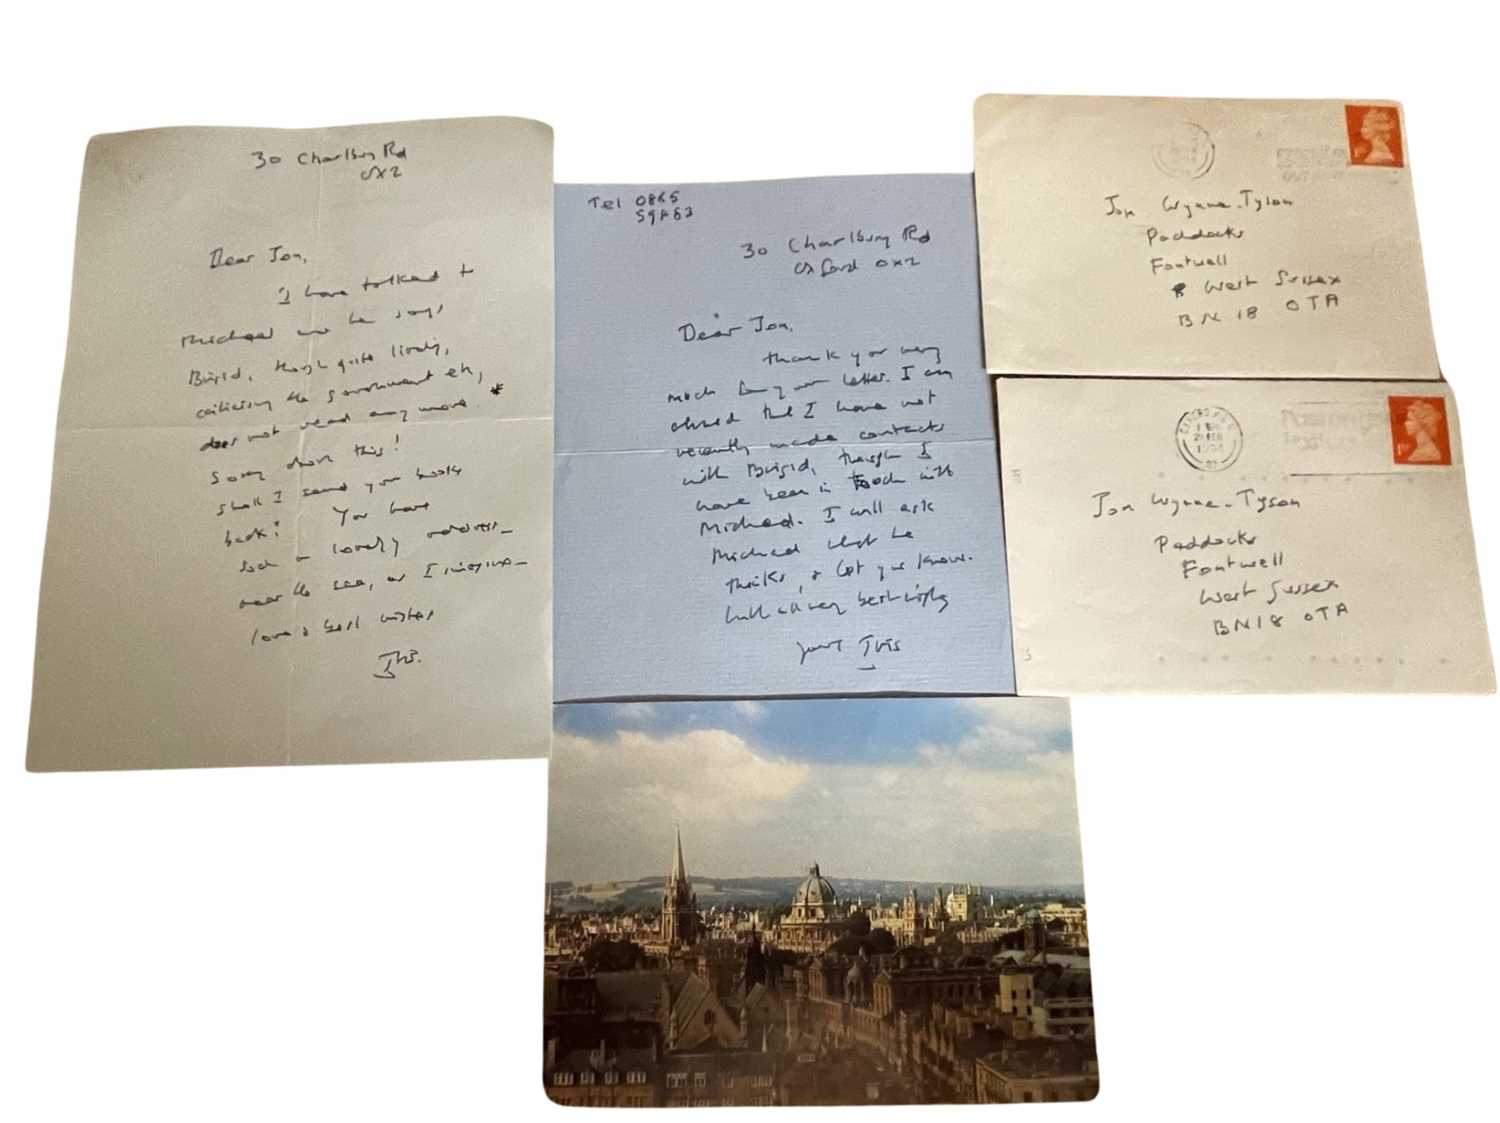 30 Charlbury Rd
OX2
Dear Jon,
I have talked to
Michael and he says
Brigid, though quite lively,
criticising the government etc,
does not read any more. *
Sorry about this!
Shall I send your books
back? You have
such a lovely address_
near the sea, as I imagine_
love & best wishes
Iris.
Tel 0865
30 Charlbury Rd
Oxford OX2
Dear Jon,
thank you very
much for your letter. I am
afraid that I have not
recently made contacts
with Brigid, though I
have been in touch with
Michael. I will ask
Michael what he
thinks, & let you know.
With all very best wishes
yours Iris
Jon Wynne-Tyson
Paddocks
Fontwell
West Sussex
BN18 0TA
Jon Wynne-Tyson
Paddocks
Fontwell
West Sussex
BN18 0TA